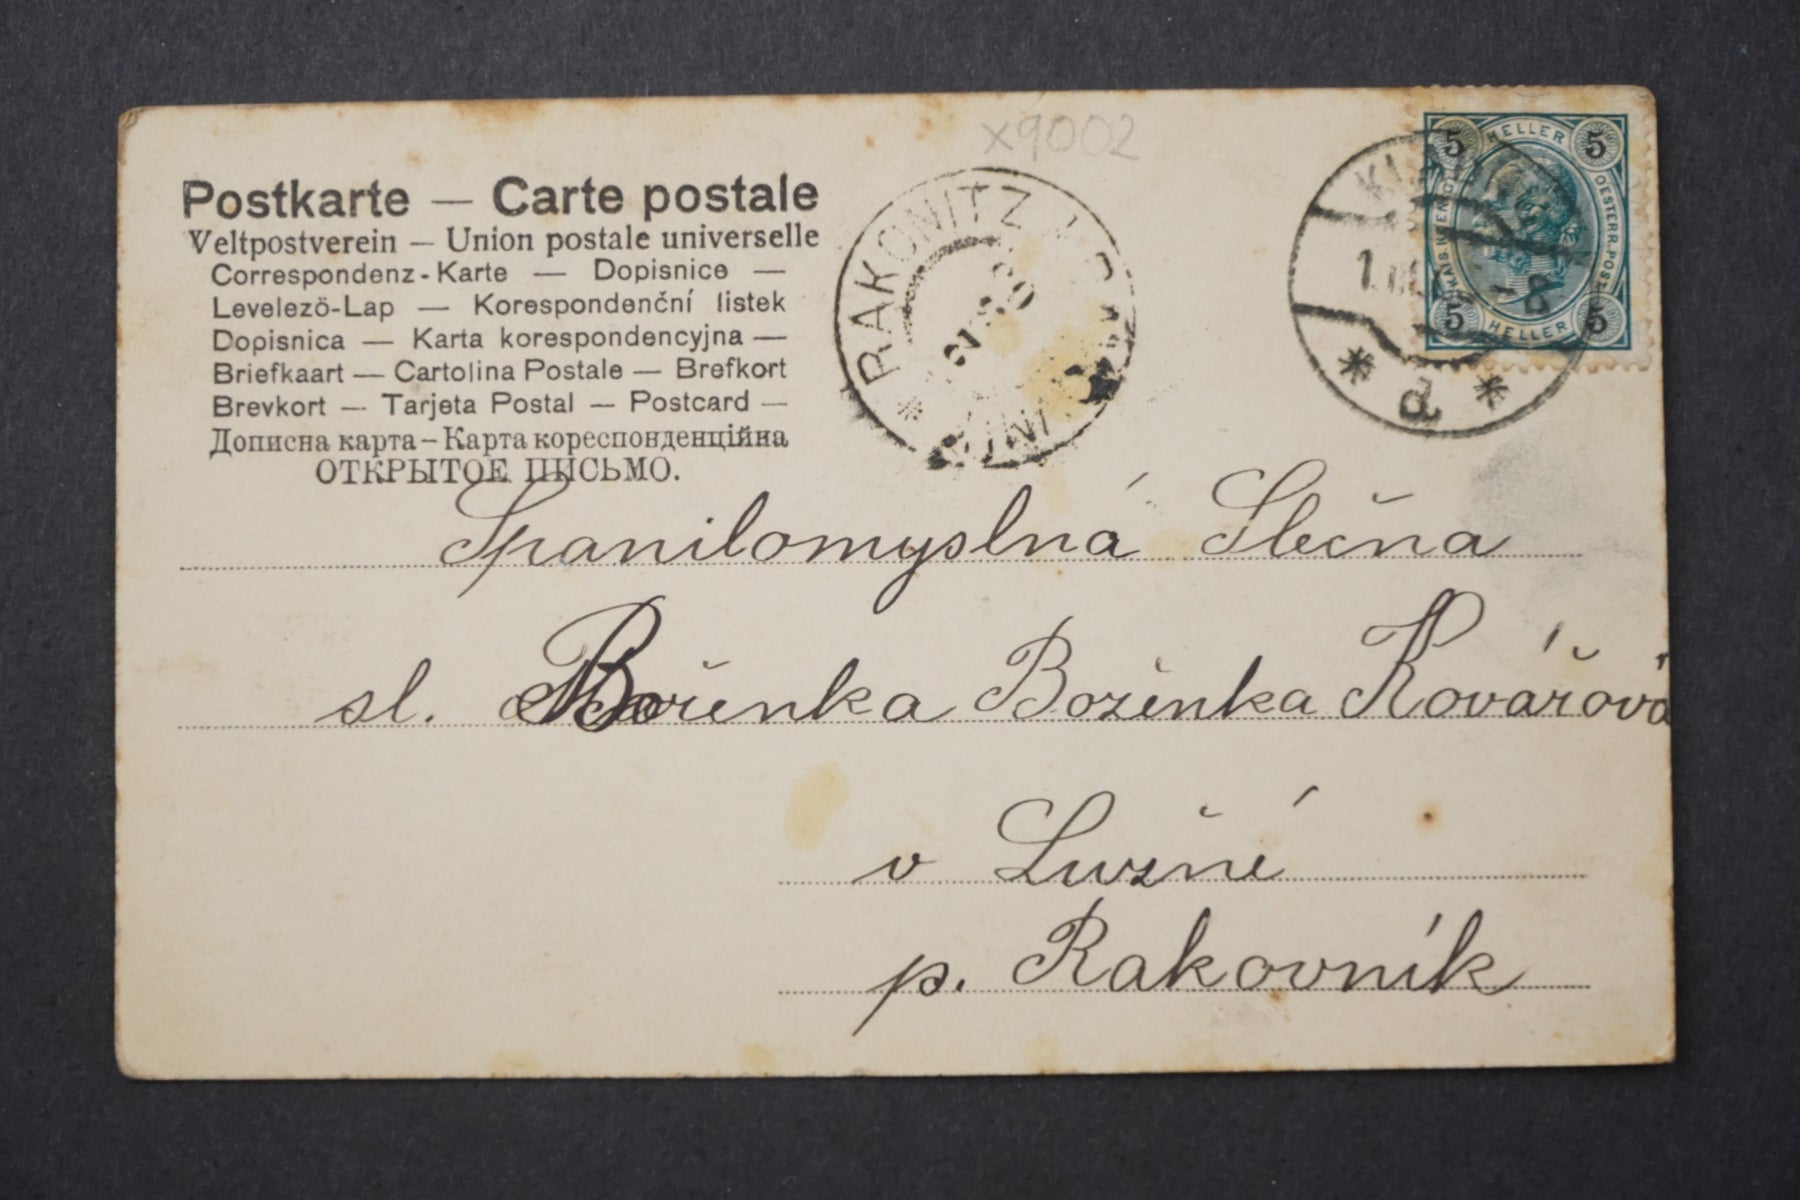 x9002
Postkarte — Carte postale
Veltpostverein — Union postale universelle
Correspondenz-Karte — Dopisnice —
Levelezö-Lap — Korespondenční listek
Dopisnica — Karta korespondencyjna —
Briefkaart — Cartolina Postale — Brefkort
Brevkort — Tarjeta Postal — Postcard —
Дописна карта – Карта кореспонденційна
ОТКРЫТОЕ ПИСЬМО.
RAKONITZ
5 HELLER 5
KAIS. KÖNIGL. OESTERR. POST
5 HELLER 5
* d *
Spanilomyslná Slečna
sl. Bořenka Boženka Kovářová
v Lužné
p. Rakovník